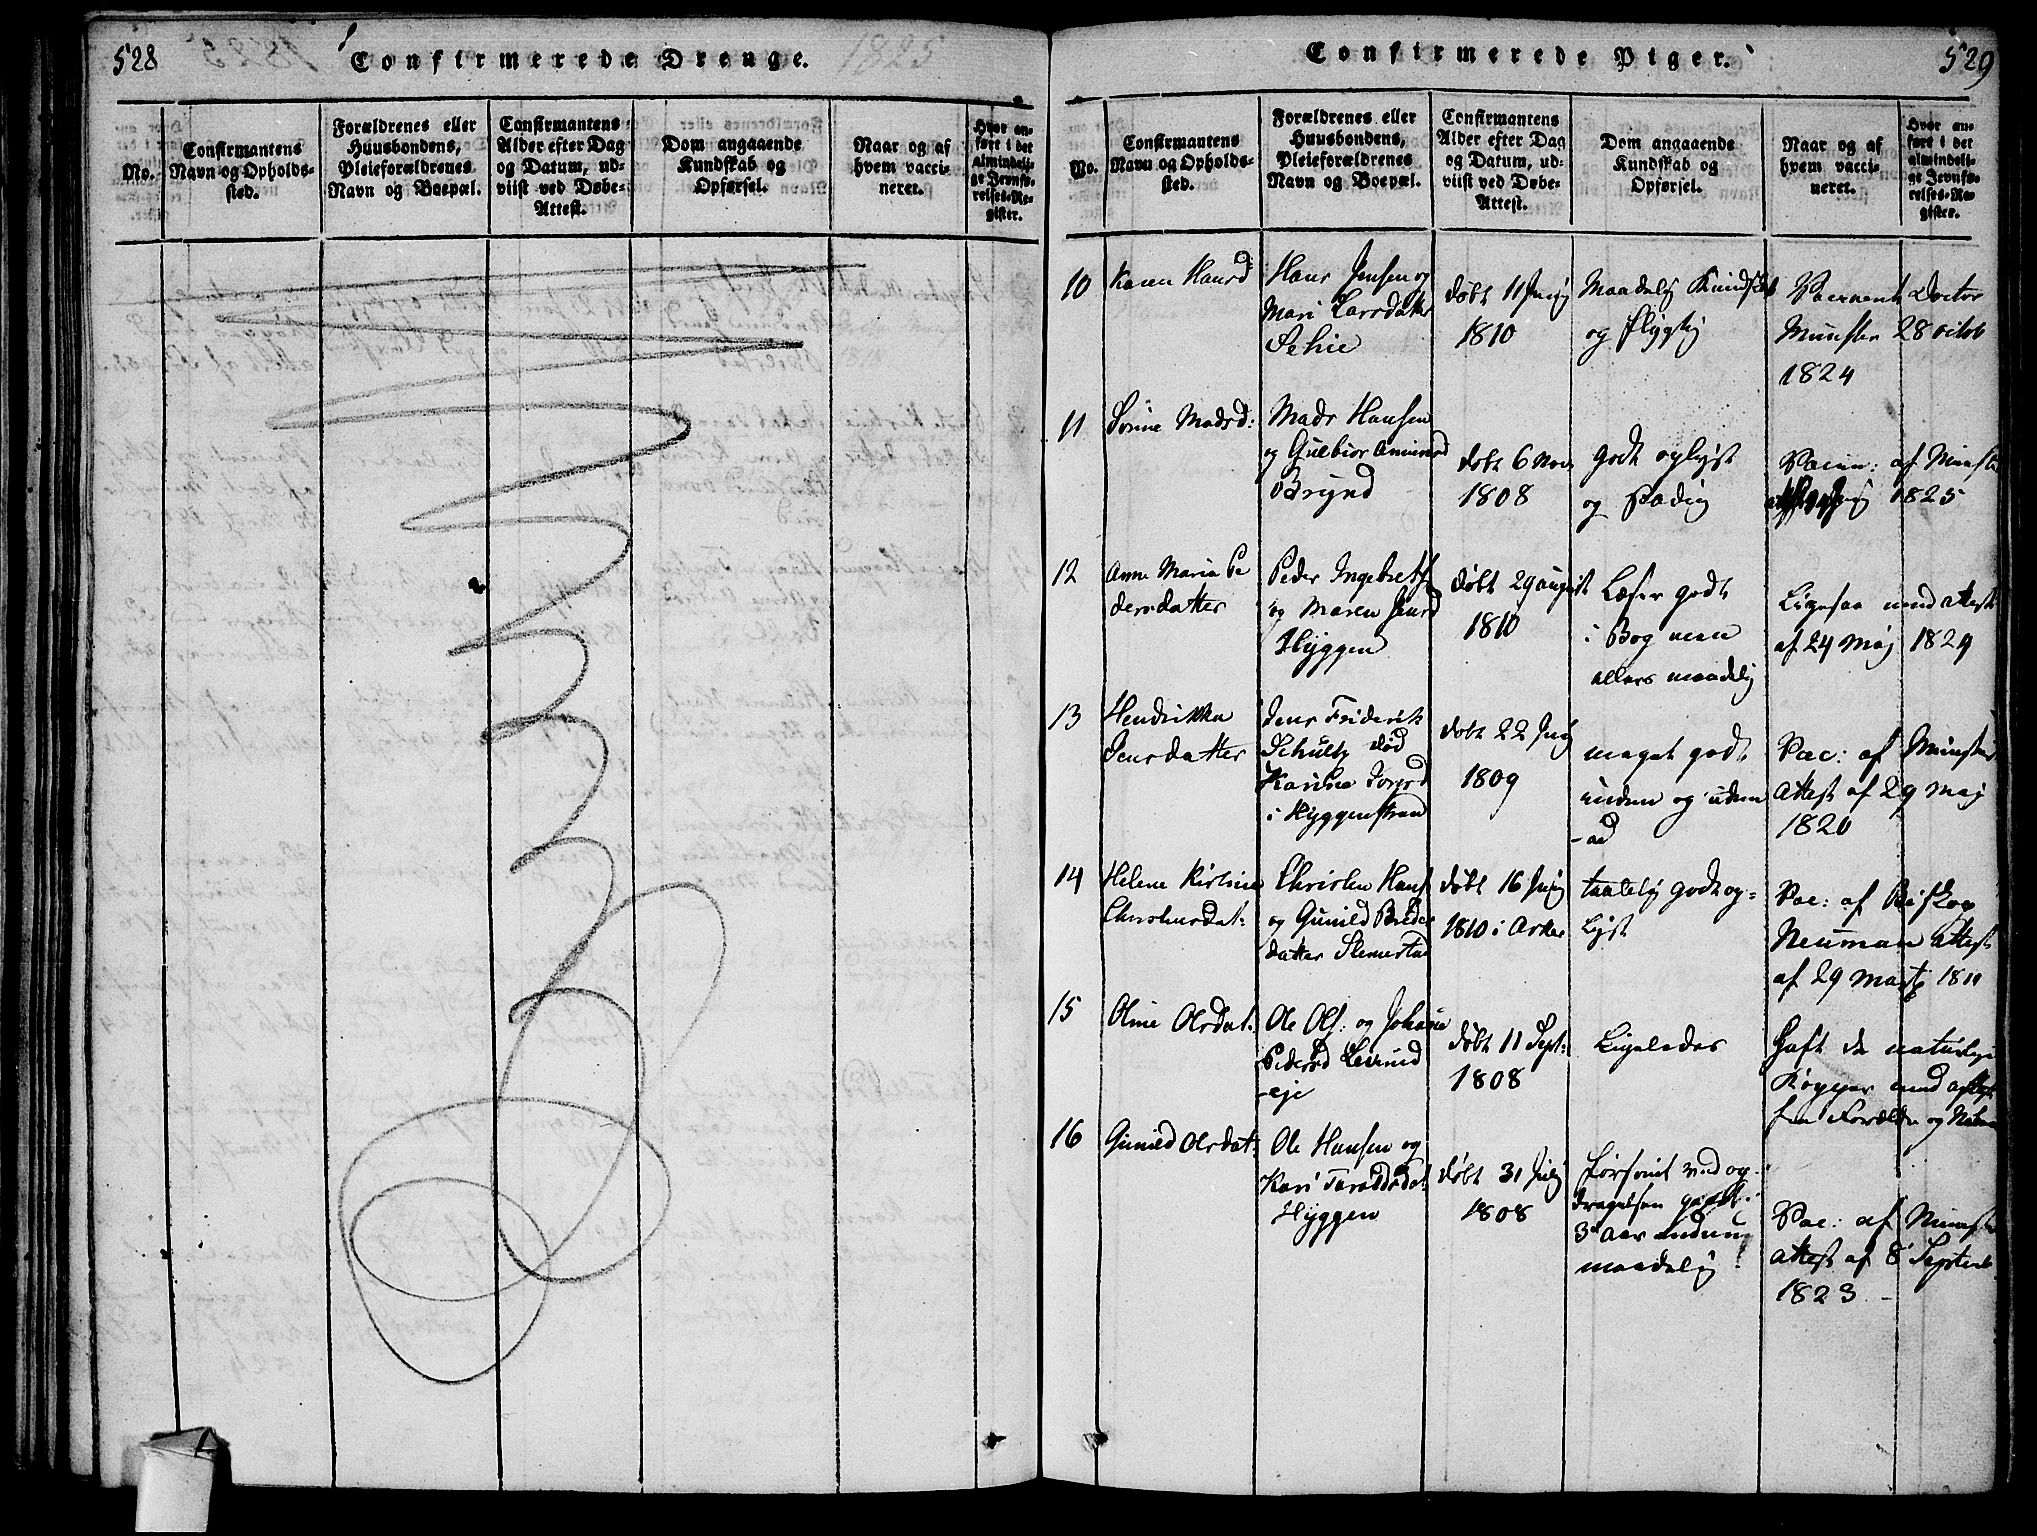 528
Confirmerede Drenge.
1825
No.
Confirmantens
Navn og Opholds-
sted.
Forældrenes eller
Huusbondens,
Pleieforældrenes
Navn og Boepæl.
Confirmantens
Alder efter Dag
og Datum, ud-
viist ved Døbe-
Attest.
Dom angaaende
Kundskab og
Opførsel.
Naar og af
hvem vacci-
neret.
Hvor an-
ført i det
almindeli-
ge Jevnfø-
relses-Re-
gister.
Confirmerede Piger.
529
No.
Confirmantens
Navn og Opholds-
sted.
Forældrenes eller
Huusbondens,
Pleieforældrenes
Navn og Boepæl.
Confirmantens
Alder efter Dag
og Datum, ud-
viist ved Døbe-
Attest.
Dom angaaende
Kundskab og
Opførsel.
Naar og af
hvem vacci-
neret.
Hvor an-
ført i det
almindeli-
ge Jevnfø-
relses-Re-
gister.
10
Karen Hansd
Hans Jensen og
Mari Larsdatter
døbt 11 Junij
1810
Maadelig Kundskab
og flygtig
Doctor
Munster 28 octob
1824
11
Madsd:
Mads Hansen
og Gulbior
døbt 6 Nov
1808
godt oplyst
og
Vaccin: af Munster
1825
12
Anne Maria Pe
dersdatter
Peder Ingebretf
og Maren Jensd
Hyggen
døbt 29 august
1810
Læser godt
i Bog men
ellers maadelig
Ligesaa med attest
af 24 Maj 1824
13
Hendrikka
Jensdatter
Jens Friderik
Schultz død
Karine
i Hyggenstrand
døbt 22
1809
meget godt
inden og uden
-ad
Vac: af Munster
attest af 29 Maj
1820
14
Helene Kirstine
Christensdat:
Christen Hans
og Gunild
datter
døbt 16
1810 i Asker
taalelig godt op-
lyst
Vac: af Biskop
Neuman attest
af 29
15
Oline Olsdat:
Ole Ols: og Johane
Pedersd
-eje
døbt 11 Sept:
1808
Ligeledes
Haft de naturlige
Kopper med
fra Forældre og
16
Gunild Olsdat:
Ole Hansen og
Kari Taraldsdat
Hyggen
døbt 31 Julij
1808
forsømt ved op-
dragelsen
3 aar
maadelig!
Vac: af Munster
attest af 8 Septemb
1823